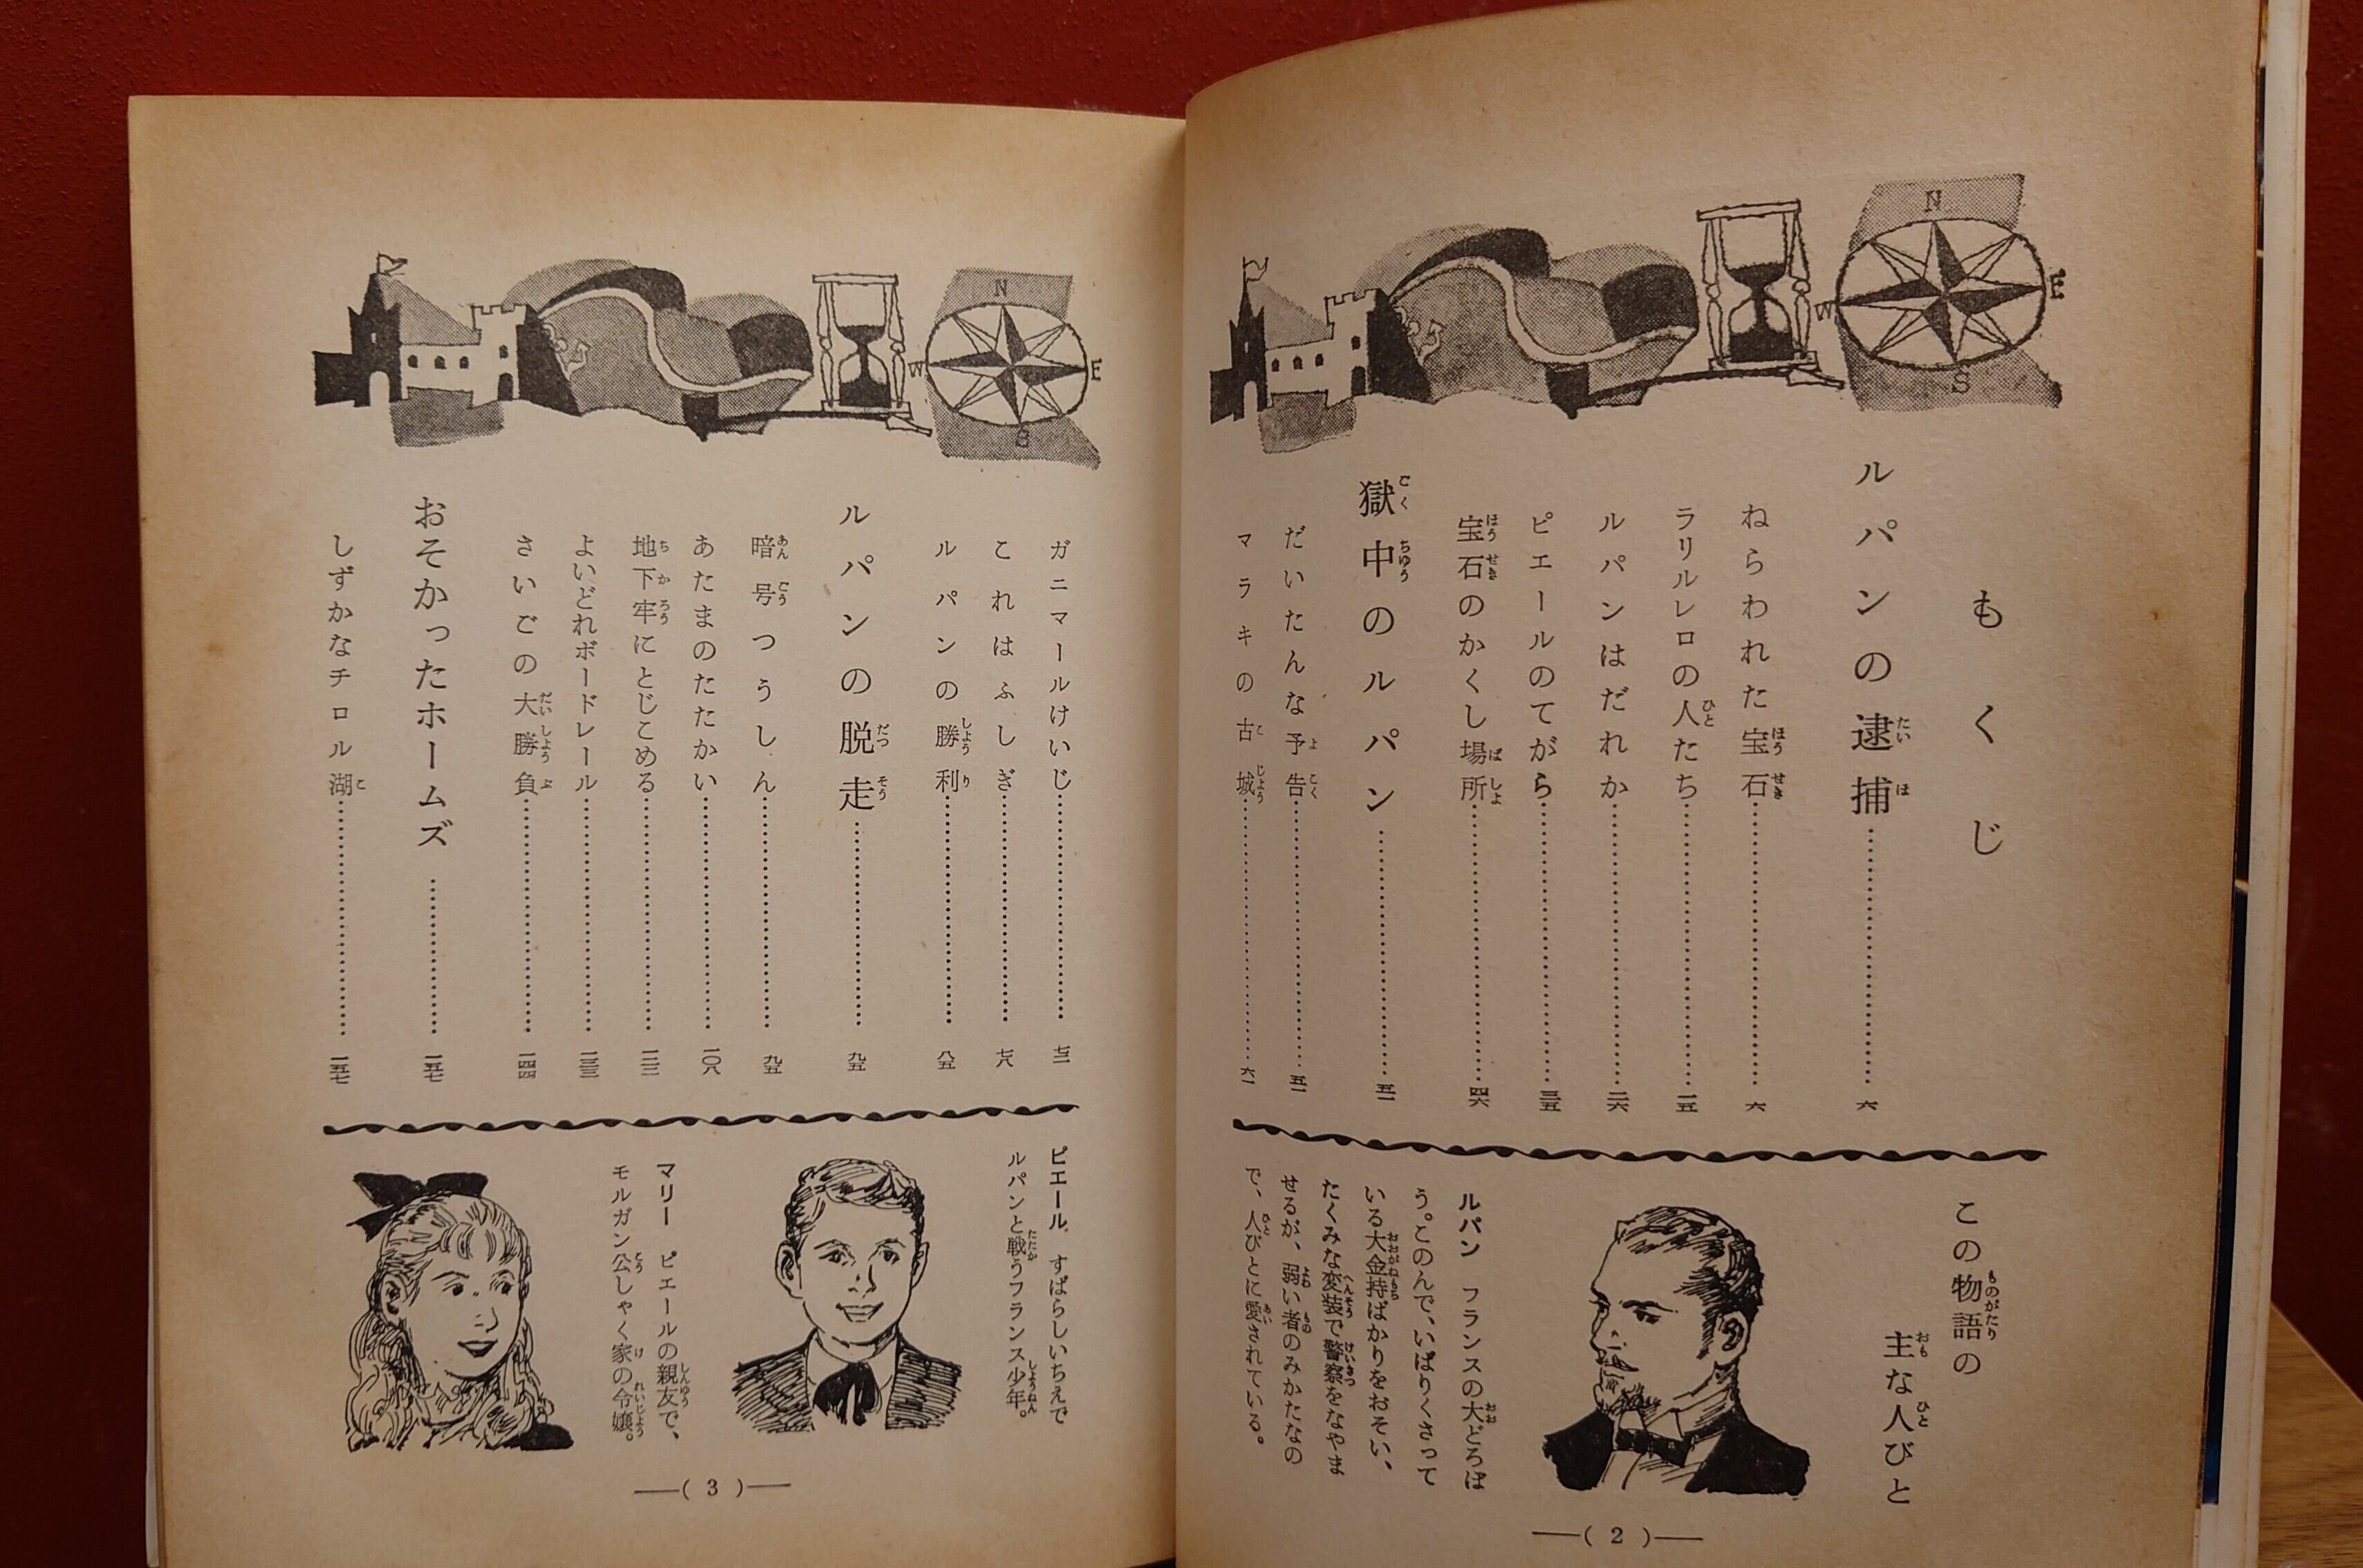 もくじ
ルパンの逮捕……六
ねらわれた宝石……六
ラリルレロの人たち……一五
ルパンはだれか……二六
ピエールのてがら……三五
宝石のかくし場所……四六
獄中のルパン……
だいたんな予告……
マラキの古城……六一
この物語の
主な人びと
ルパン フランスの大どろぼ
う。このんで、いばりくさって
いる大金持ばかりをおそい、
たくみな変装で警察をなやま
せるが、弱い者のみかたなの
で、人びとに愛されている。
—( 2 )—
ガニマールけいじ……
これはふしぎ……七八
ルパンの勝利……八五
ルパンの脱走……九五
暗号つうしん……九五
あたまのたたかい……一〇八
地下牢にとじこめる……一二二
よいどれボードレール……一三三
さいごの大勝負……一四四
おそかったホームズ……一五七
しずかなチロル湖……一五七
ピエール すばらしいちえで
ルパンと戦うフランス少年。
マリー ピエールの親友で、
モルガン公しゃく家の令嬢。
—( 3 )—
N
E
S
W
N
E
S
W